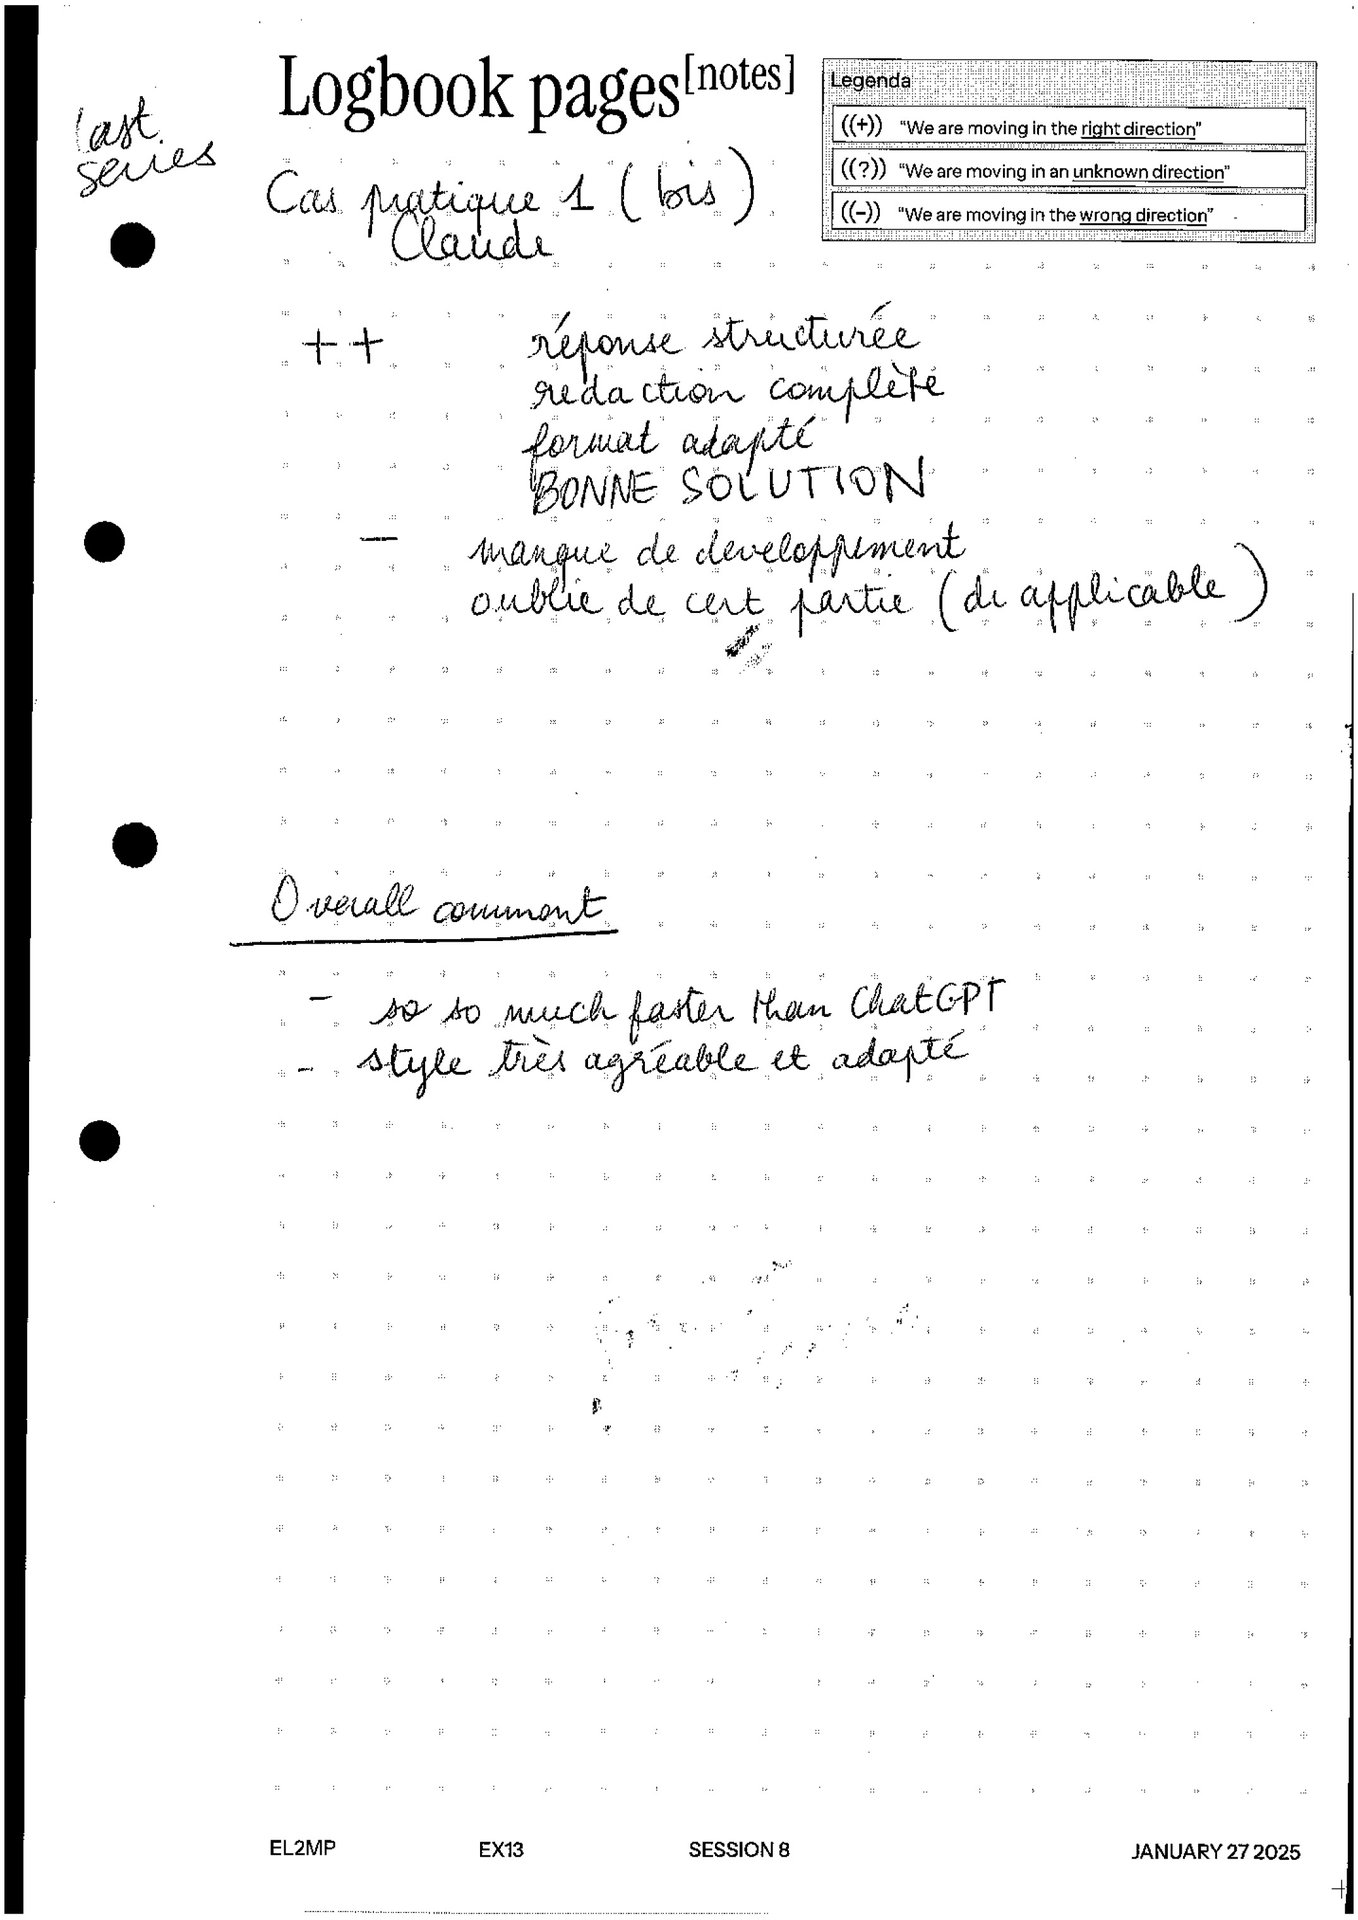 Logbook pages[notes]
Legenda
((+)) "We are moving in the right direction"
((?)) "We are moving in an unknown direction"
((-)) "We are moving in the wrong direction"
last
series
Cas pratique 1 (bis)
Claude
++ réponse structurée
rédaction complète
format adapté
BONNE SOLUTION
- manque de developpement
oublie de cert partie (di applicable)
Overall comment
- so so much faster than ChatGPT
- style très agréable et adapté
EL2MP EX13 SESSION 8 JANUARY 27 2025